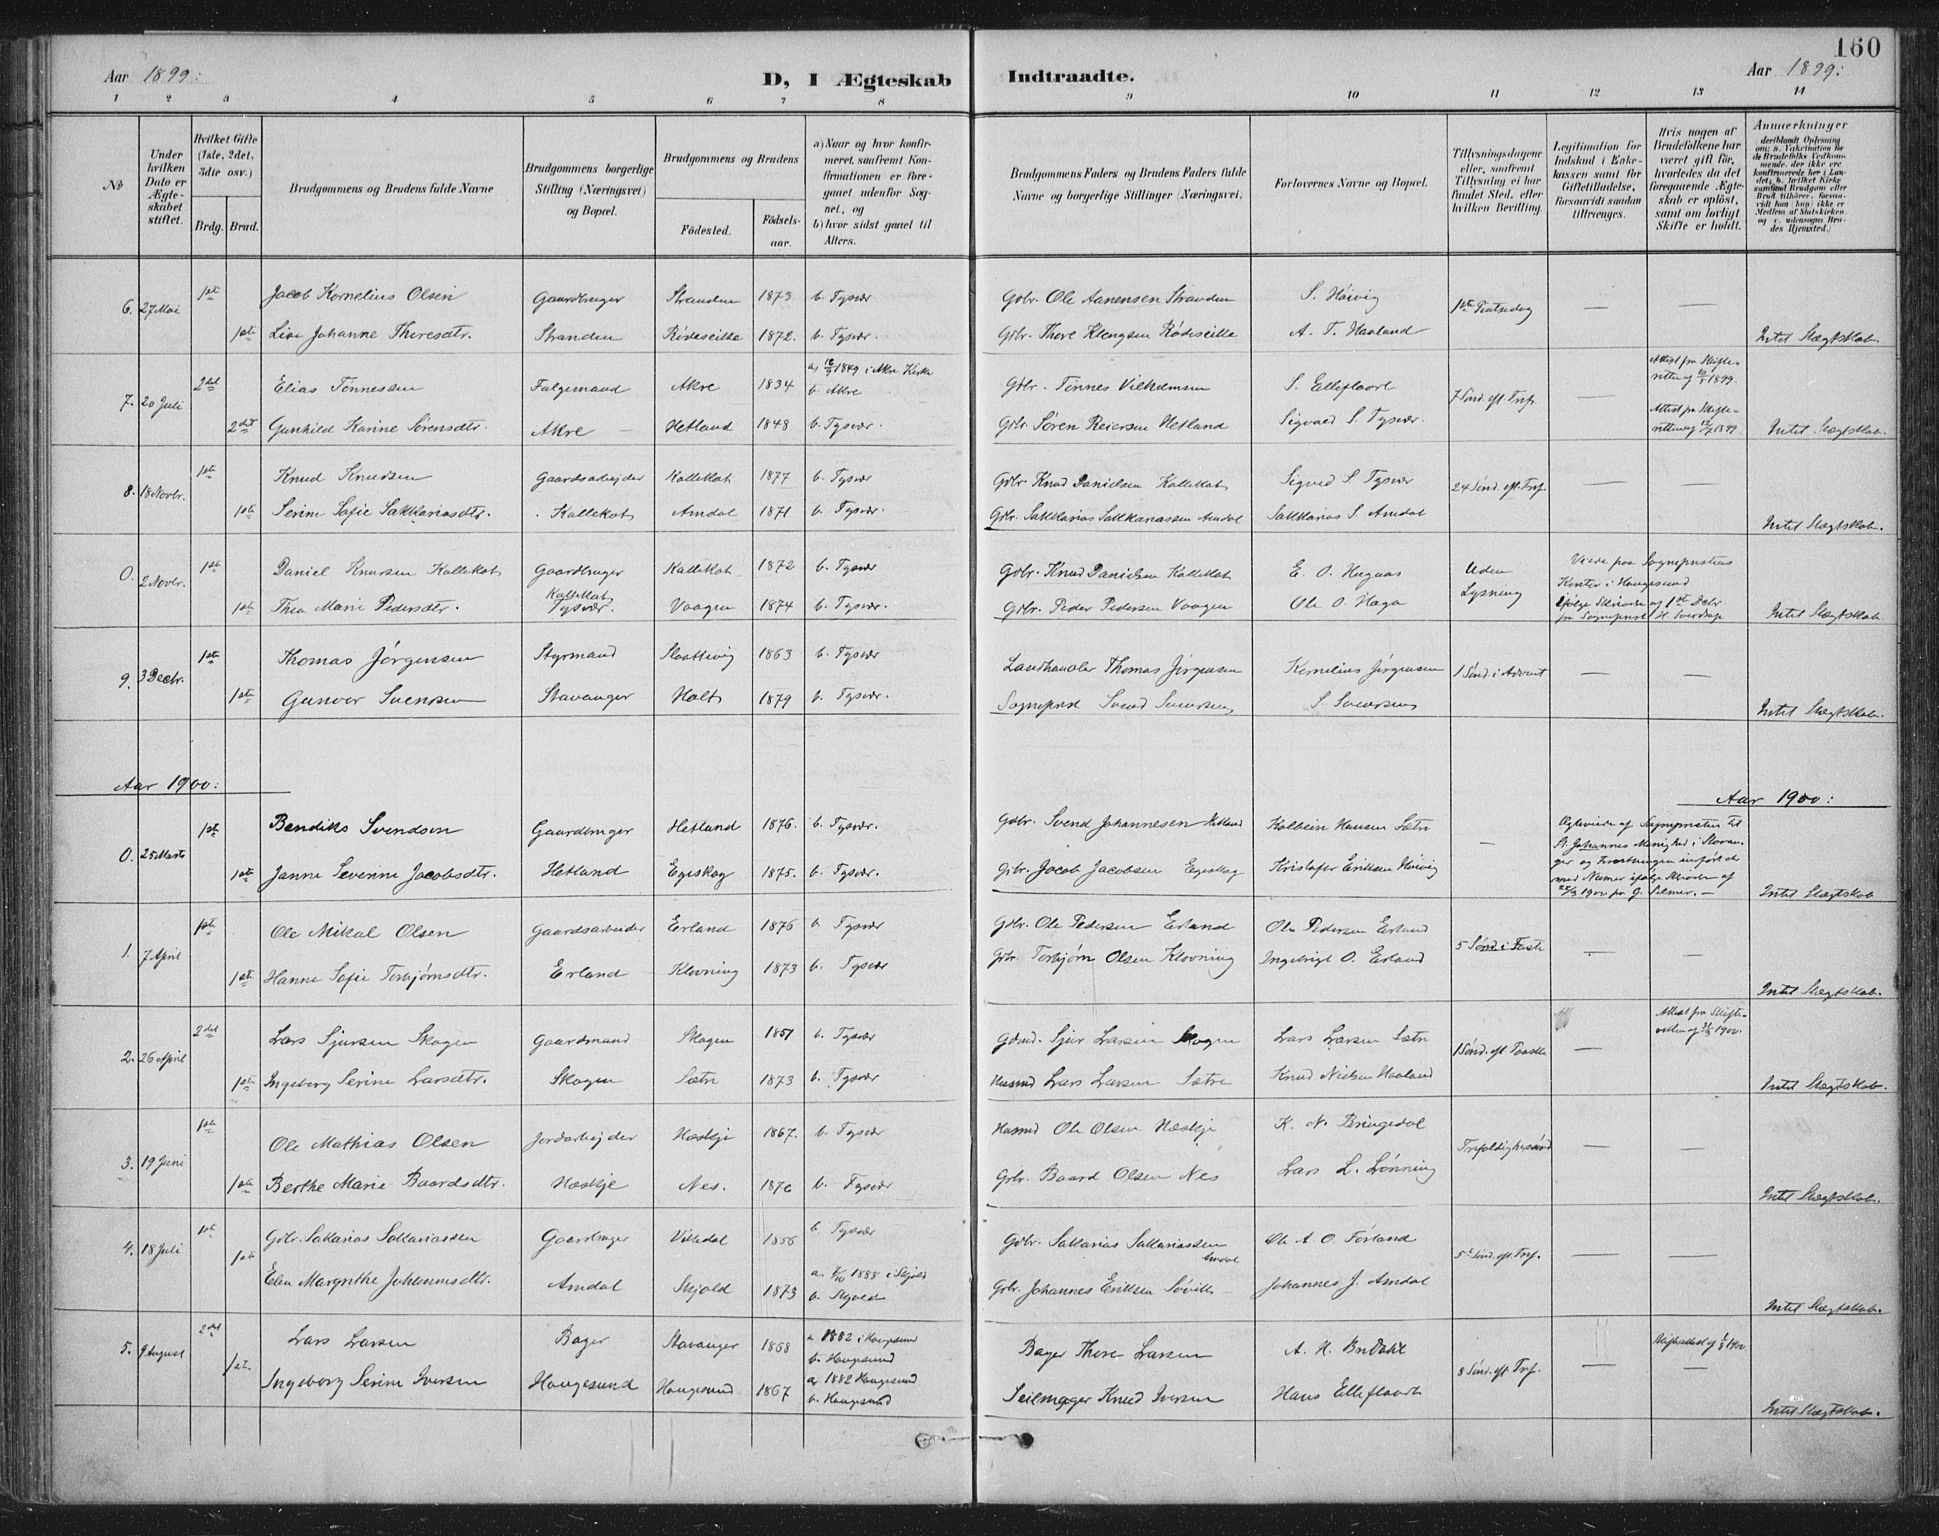 160
Aar 1899:
D, I Ægteskab Indtraadte.
Aar 1899:
1 2 3 4 5 6 7 8 9 10 11 12 13 14
No
Under hvilken Dato er Ægteskabet stiftet.
Hvilket Gifte (1ste, 2det, 3die osv.)
Brdg. Brud.
Brudgommens og Brudens fulde Navne
Brudgommens borgerlige Stilling (Næringsvei) og Bopæl.
Brudgommens og Brudens
Fødested.
Fødselsaar.
a) Naar og hvor konfirmeret, saafremt Konfirmationen er foregaaet udenfor Sognet, og
b) hvor sidst gaaet til Alters.
Brudgommens Faders og Brudens Faders fulde Navne og borgerlige Stillinger (Næringsvei)
Forlovernes Navne og Bopæl.
Tillysningsdagene eller, saafremt Tillysning ei har fundet Sted, efter hvilken Bevilling.
Legitimation for Indskud i Enkekassen samt for Giftetilladelse, forsaavidt saadan tiltrænges.
Hvis nogen af Brudefolkene har været gift før, hvorledes da det foregaaende Ægteskab er opløst, samt om lovligt Skifte er holdt.
Anmerkninger
6. 27 Mai 1ste Jacob Kornelius Olsen Gaardbruger Stranden 1873 b. Tysvær Gdbr. Ole Aanensen Stranden S. Høivig 1ste Pintsedag — —
1ste Lise Johanne Thoresdtr. Stranden 1872. b. Tysvær. Gdbr. Thore A. T. Haaland Intet Slægtskab.
7. 20 Juli 2det Elias Tønnessen Akre 1834 a) 1849 i Akre Kirke b. Akre Gdbr. Tønnes Vilhelmsen S. Elleflaadt 7 Sønd. eft. Tref. — Attest fra Skifteretten af 1899.
2det Gunhild Karine Sørensdtr. Akre Hetland 1848 b. Tysvær. Gdbr. Søren Reiersen Hetland Sigvald S. Tysvær. Attest fra Skifteretten af 1899 Intet Slægtskab.
8. 18 Novbr. 1ste Knud Knudsen Gaardsarbejder Kallekot 1877 b. Tysvær Gdbr. Knud Danielsen Kallekot Sigved S Tysvær 24 Sønd. eft. Tref. — —
1ste Serine Sofie Sakkariasdtr. Kallekot Amdal 1871 b. Tysvær. Gdbr. Sakkarias Sakkariassen Amdal Sakkarias S. Amdal Intet Slægtskab.
0. 2 Novbr. 1ste Daniel Knudsen Kallekot Gaardbruger Kallekot 1872 b. Tysvær Gdbr. Knud Danielsen Kallekot E. O. Uden Lysning Viede paa Sogneprestens Kontor i Haugesund
1ste Thea Marie Pedersdtr. Kallekot Tysvær. Vaagen 1874 b. Tysvær. Gdbr. Peder Pedersen Vaagen Ole O. Haga ifølge Skrivelse af 1ste Decbr. fra Sogneprest H. Sverdrup Intet Slægtskab
9. 3 Decbr. 1ste Thomas Jørgensen Styrmand Slaattevig 1863 b. Tysvær Landhandler Thomas Jørgensen Kornelius Jørgensen 1 Sønd i Advent — —
1ste Gunvor Svensen Stavanger Holt 1879 b. Tysvær. Sogneprest Svend Svensen S. Svensen Intet Slægtskab.
Aar 1900:
Aar 1900:
0. 25 Marts 1ste Bendiks Svendsen Gaardbruger Hetland 1876. b. Tysvær. Gdbr. Svend Johannesen Hetland Kolbein Hansen Sætre — Egteviede af Sognepresten til St. Johannes Menighed i Stavanger
1ste Janne Severine Jacobsdtr. Hetland Egeskog 1875. b. Tysvær. Gdbr. Jacob Jacobsen Egeskog Kristofer Eriksen Høivig Intet Slægtskab
1. 7 April 1ste Ole Mikal Olsen Gaardsarbeider Erland 1876 b. Tysvær Gdbr. Ole Pedersen Erland Ole Pedersen Erland 5 Sønd. i Faste — —
1ste Hanne Sofie Torbjørnsdtr. Erland Klovning 1873 b. Tysvær Gdbr. Torbjørn Olsen Klovning Ingebrigt O. Erland Intet Slægtskab.
2. 26 April 2det Lars Sjursen Skogen Gaardmand Skogen 1851 b. Tysvær Gdmd. Sjur Larsen Skogen Lars Larsen Sætre 1 Sønd. eft Paaske — Attest fra Skifteretten af 1900.
1ste Ingeborg Serine Larsdtr. Skogen Sætre 1873 b. Tysvær Husmd Lars Larsen Sætre Knud Nielsen Haaland Intet Slægtskab.
3. 19 Juni 1ste Ole Mathias Olsen Jordarbejder Næskje 1867. b. Tysvær Husmd Ole Olsen Næskje K. N. Bringedal Trefoldighedssønd — —
1ste Berthe Marie Baardsdtr. Næskje Nes. b. Tysvær Gdbr. Baard Olsen Nes Lars L. Lønning Intet Slægtskab.
4. 18 Juli 1ste Gdbr. Sakarias Sakariassen Gaardbruger Vikedal 1856 b. Tysvær Gdbr. Sakarias Sakariassen Amdal Ole A. O. Førland 5te Sønd. eft. Tref. — —
1ste Elen Margrethe Johannesdtr. Amdal Skjold 1873 a. 1888 i Skjold b. Skjold Gdbr. Johannes Eriksen Johannes J. Amdal Intet Slægtskab.
5. 9 August 2det Lars Larsen Bager Stavanger 1868 a 1882 i Haugesund b. Haugesund Bager Thore Larsen A. H. 8 Sønd. eft Tref. — Skifteattest af 1900 —
1ste. Ingeborg Serine Iversen Haugesund Haugesund 1867 a) 1882 Haugesund b. Haugesund Seilmager Knud Iversen Hans Elleflaadt Intet Slægtskab.